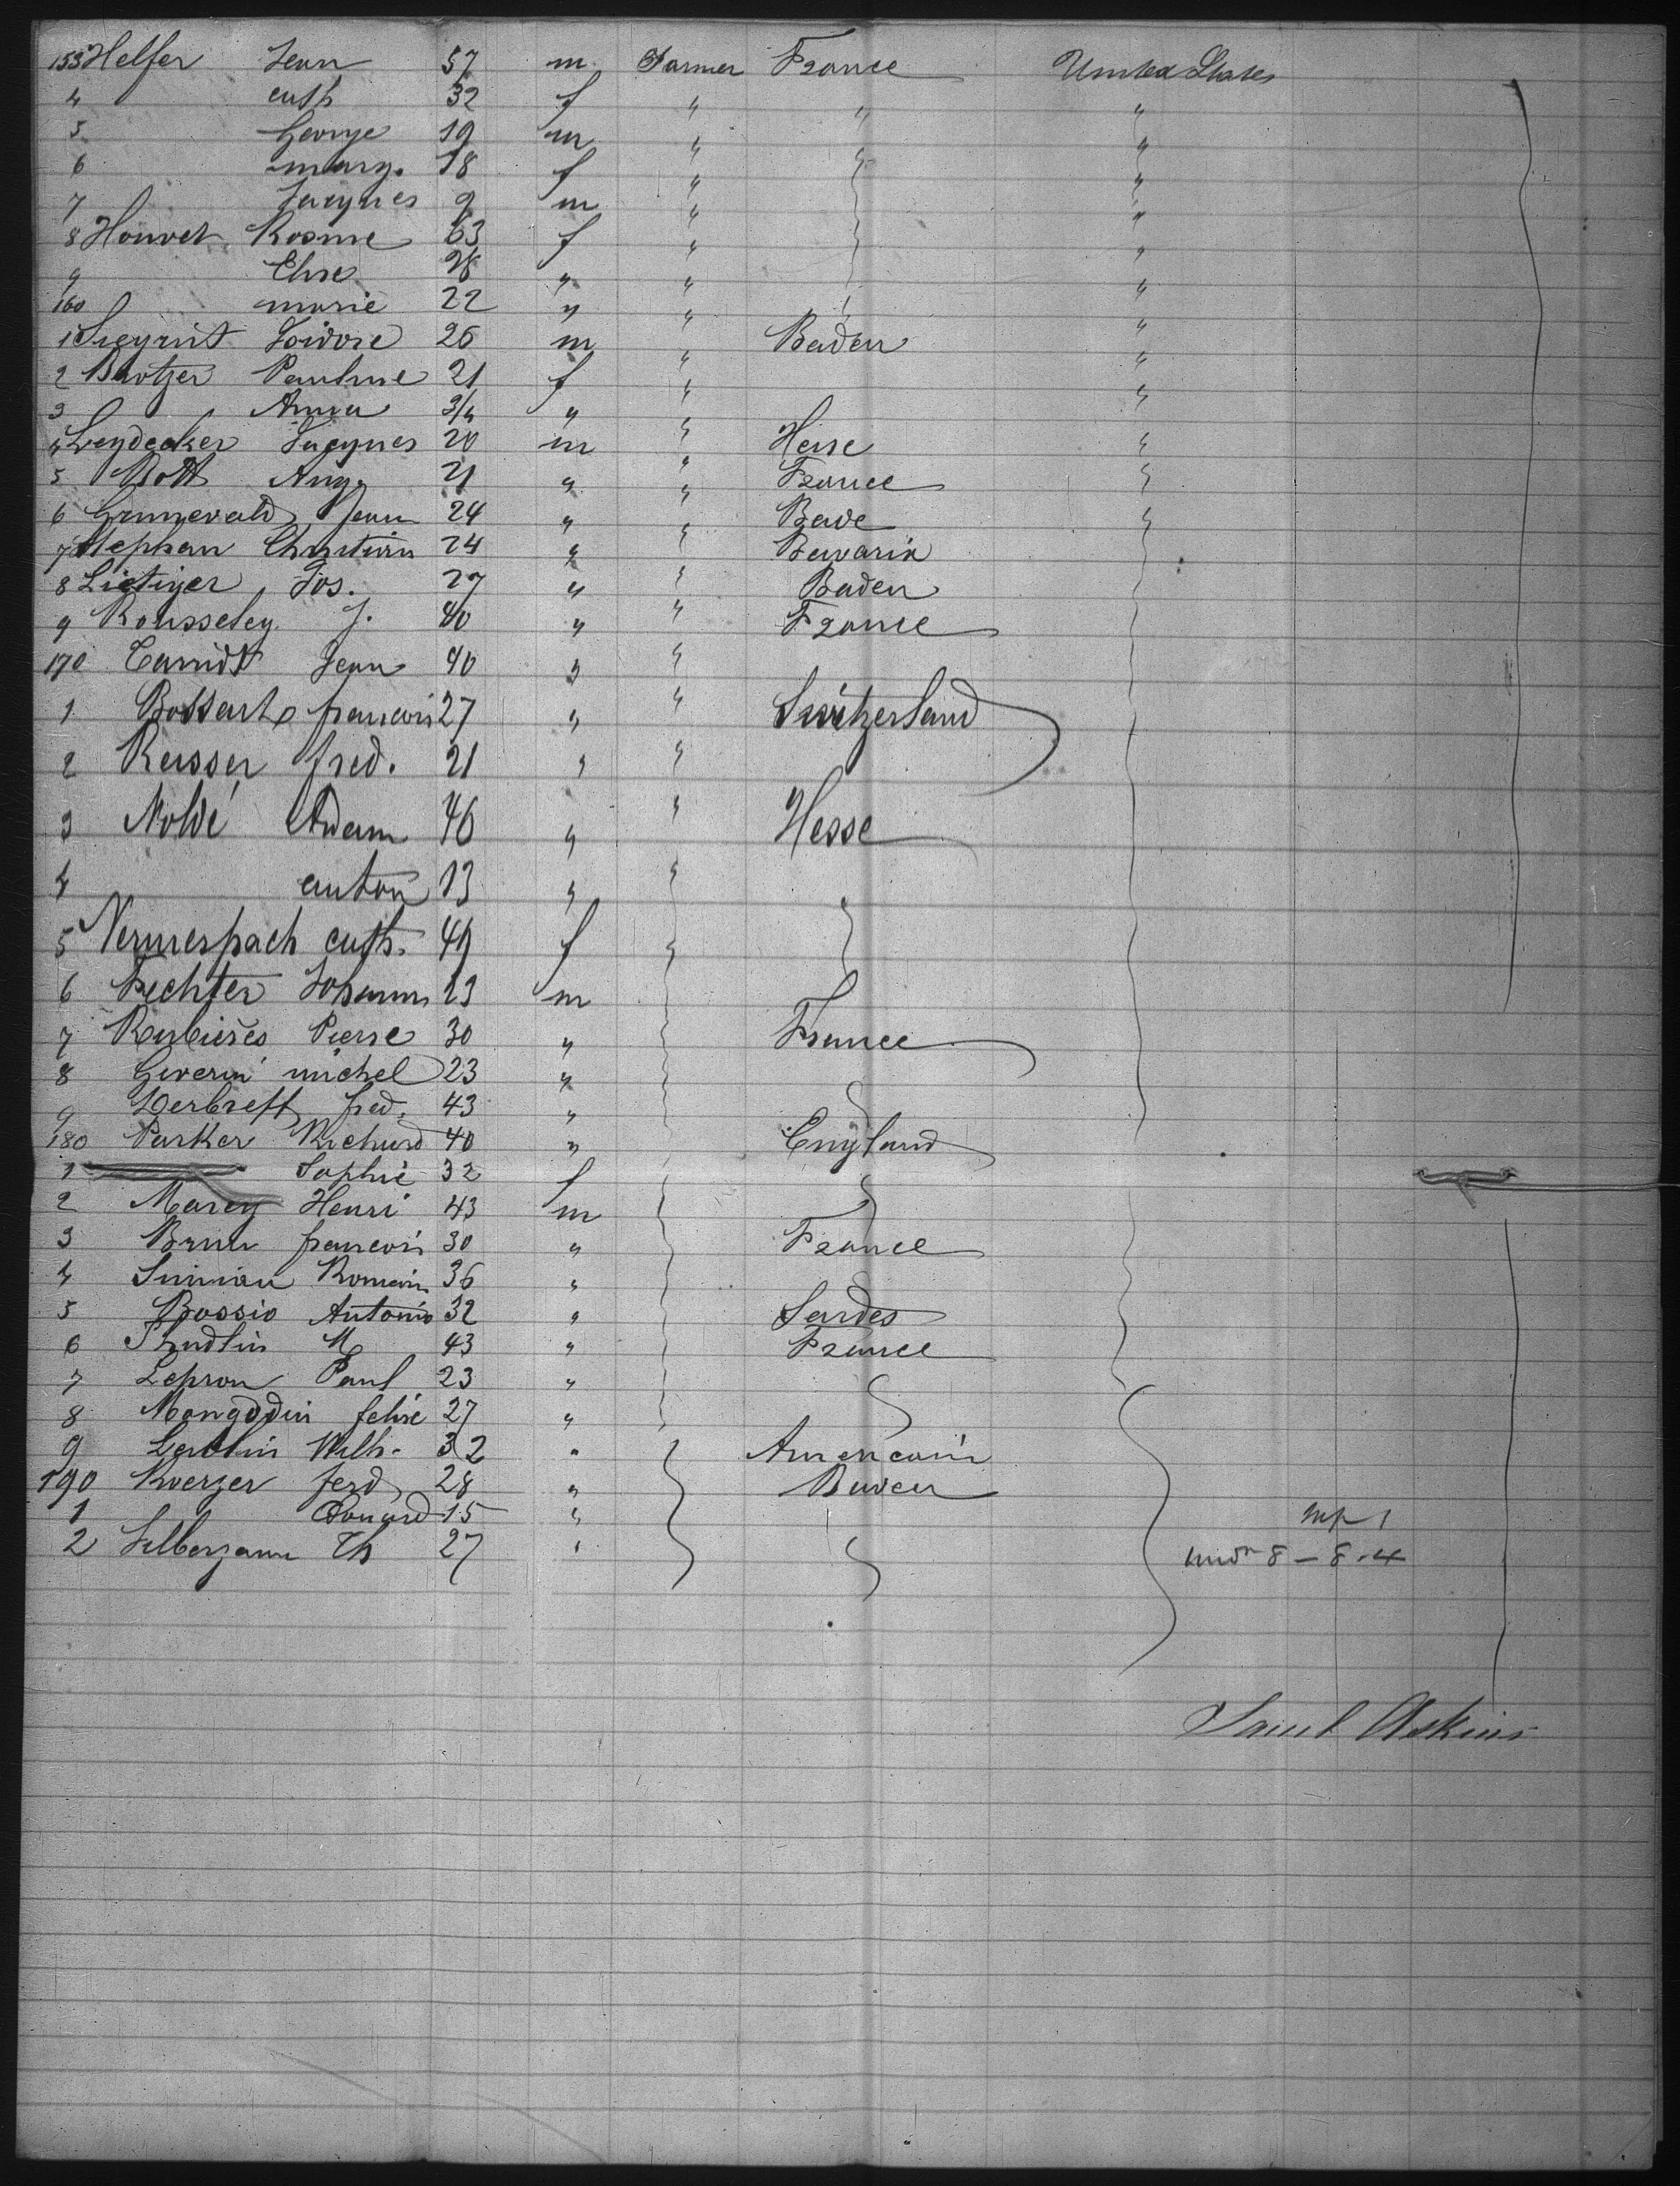 153 Helfer Jean 57 m Farmer France United States
4 cath 32 f " " "
5 George 19 m " " "
6 marg. 18 f " " "
7 Jacques 9 m " "
8 Houvet Rosine 63 f " "
9 Elise 28 " " "
160 marie 22 " " "
1 Isidore 26 m " Baden "
2 Pauline 21 f " "
3 Anna 3/4 " " "
4 Leydecker Jacques 20 m " Hesse "
5 Bott Aug. 21 " " France "
6 Grunevald Jean 24 " " Bade "
7 Stephan Christian 24 " " Bavaria
8 Jos. 27 " " Baden
9 Rousseley J. 40 " " France
170 Jean 40 " "
1 Bossart francois 27 " " Switzerland
2 Reisser fred. 21 " "
3 Noldé Adam 46 " " Hesse
4 anton 13 " "
5 cath. 49 f "
6 Fechter Johann 23 m
7 Pierre 30 " France
8 Giverin michel 23 "
9 fred. 43 "
180 Parker Richard 40 " England
1 Sophie 32 f
2 Marey Henri 43 m
3 Brun francois 30 " France
4 Simian Romain 36 "
5 Bossio Antonio 32 " Sardes
6 M 43 " France
7 Lepron Paul 23 "
8 27 "
9 Wilh. 32 " American
190 Kverzer ferd 28 " Baden
1 Edouard 15 "
2 Silberzann Th 27 "
8 - 8.4
Saml Askins